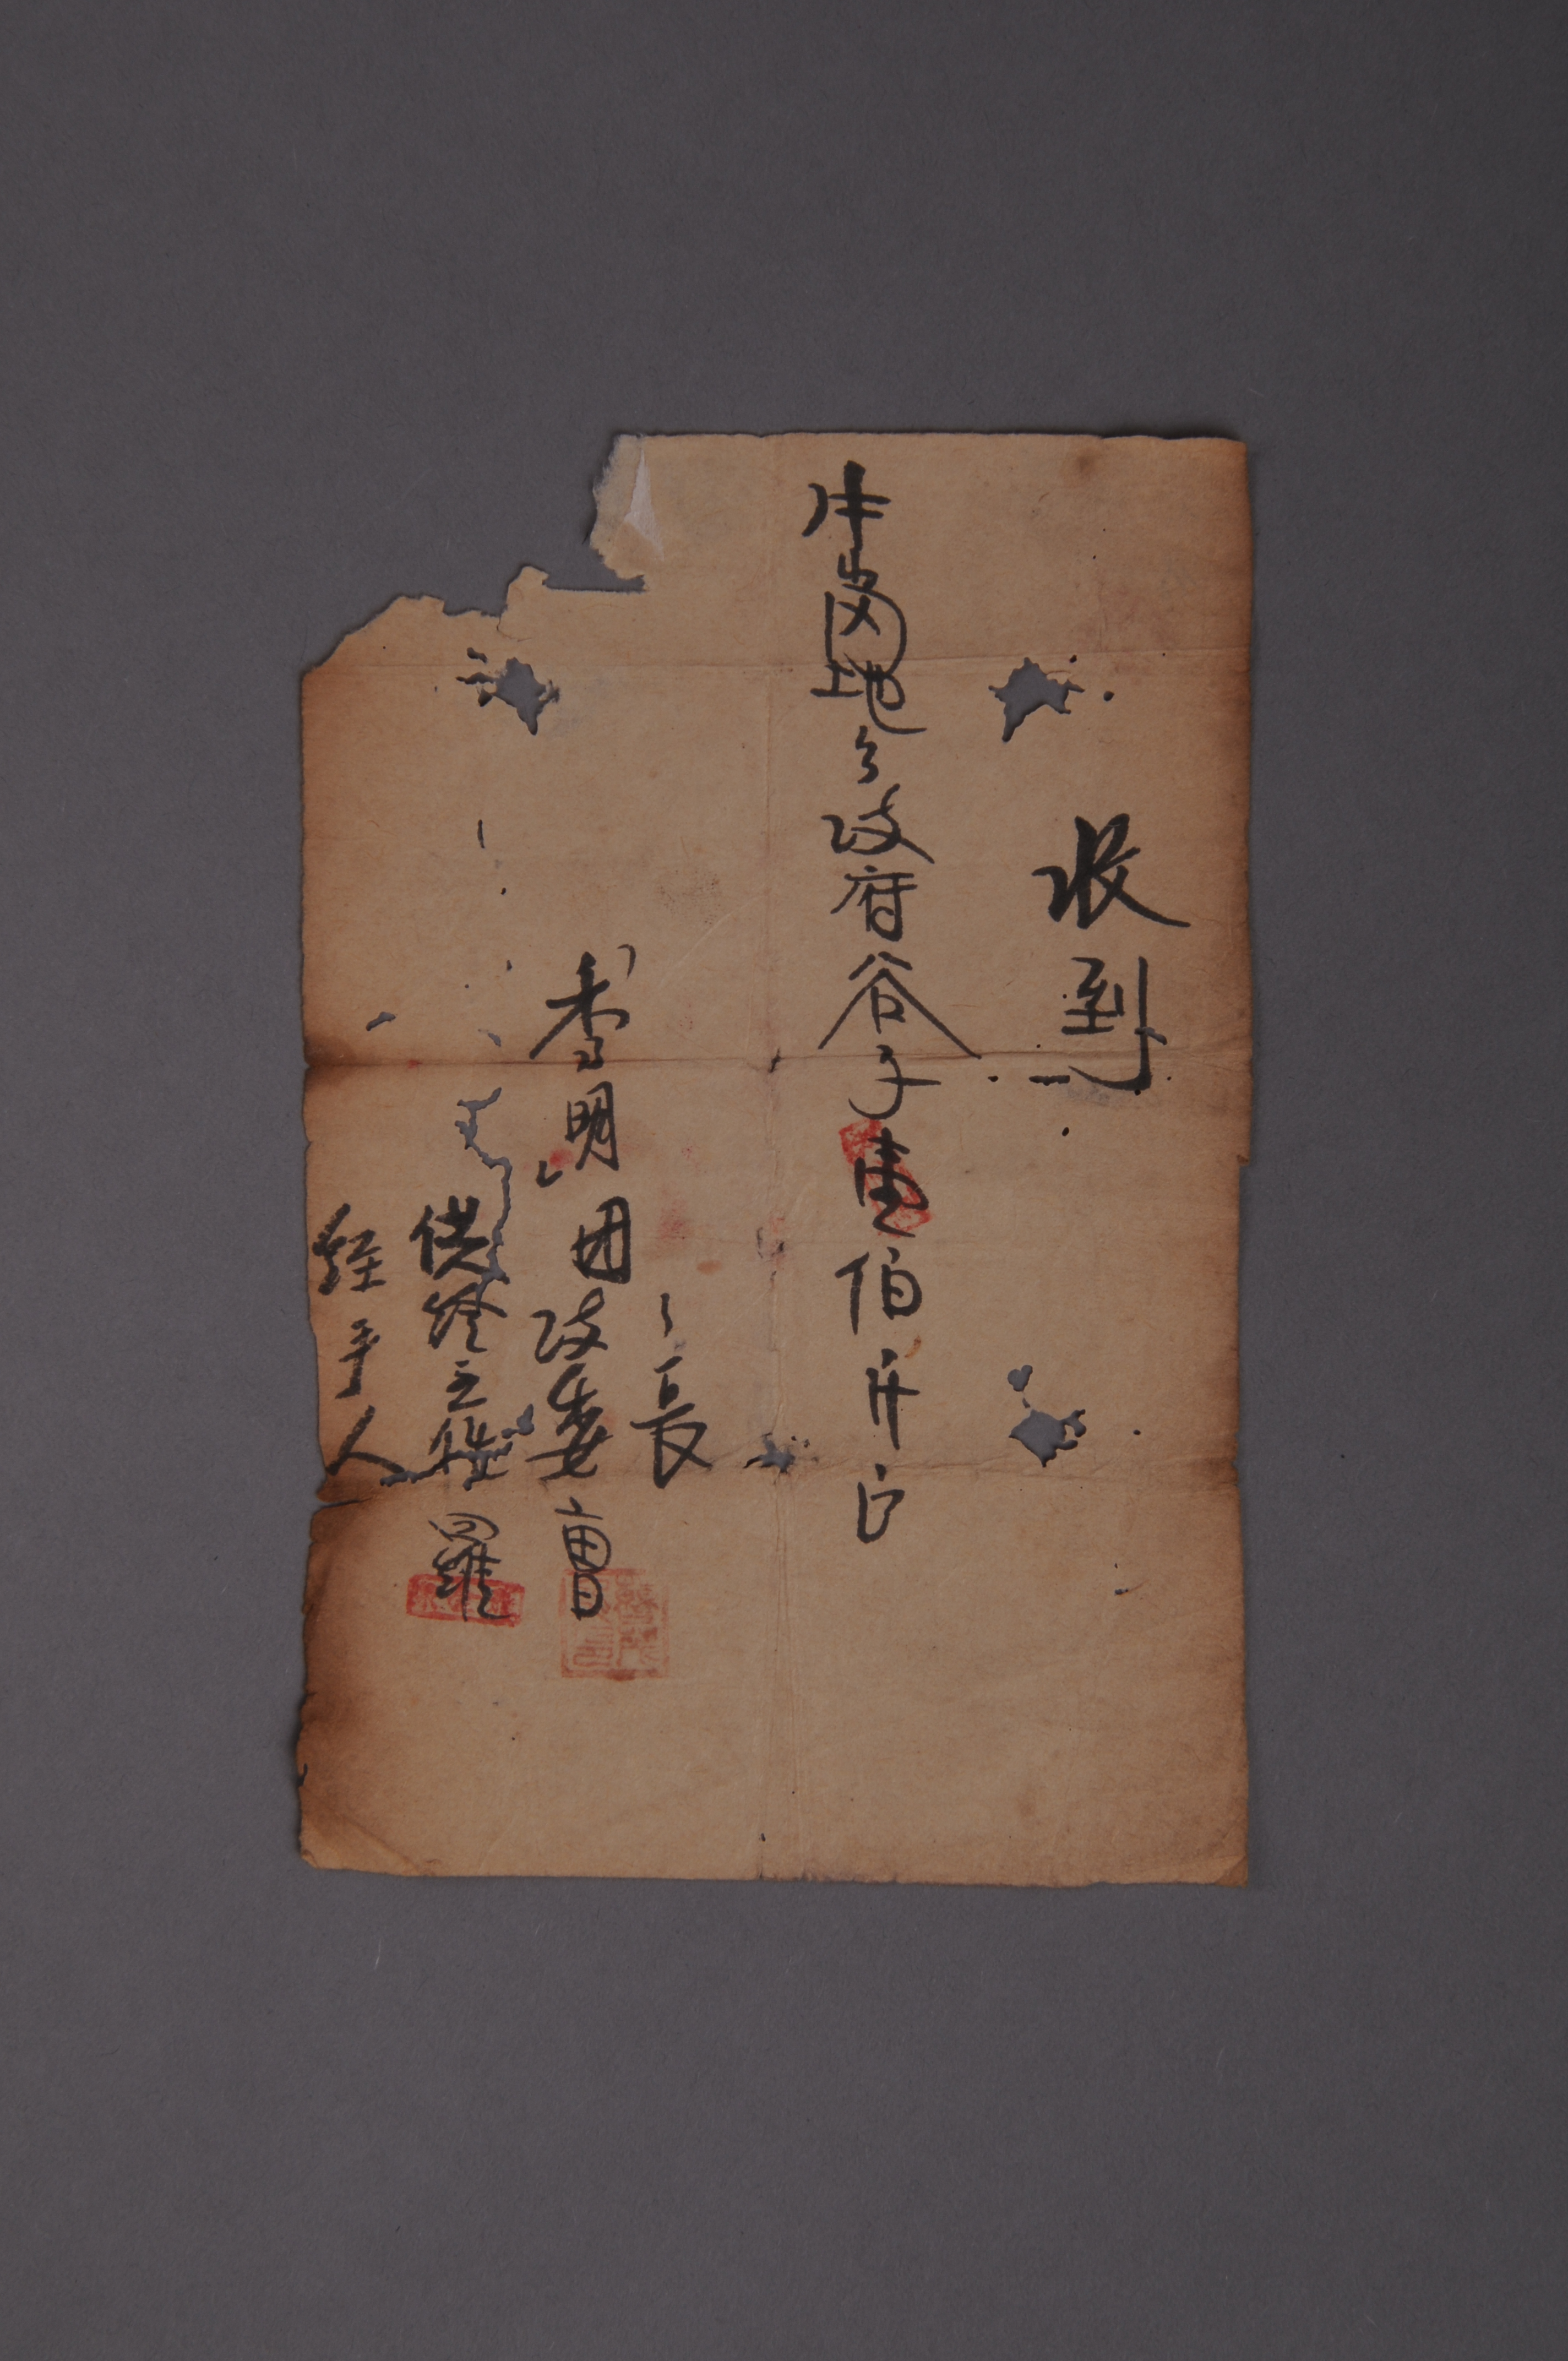 收到
岗地乡政府谷子壹伯斤正
長
李明团政委曹
供给主任羅
经手人